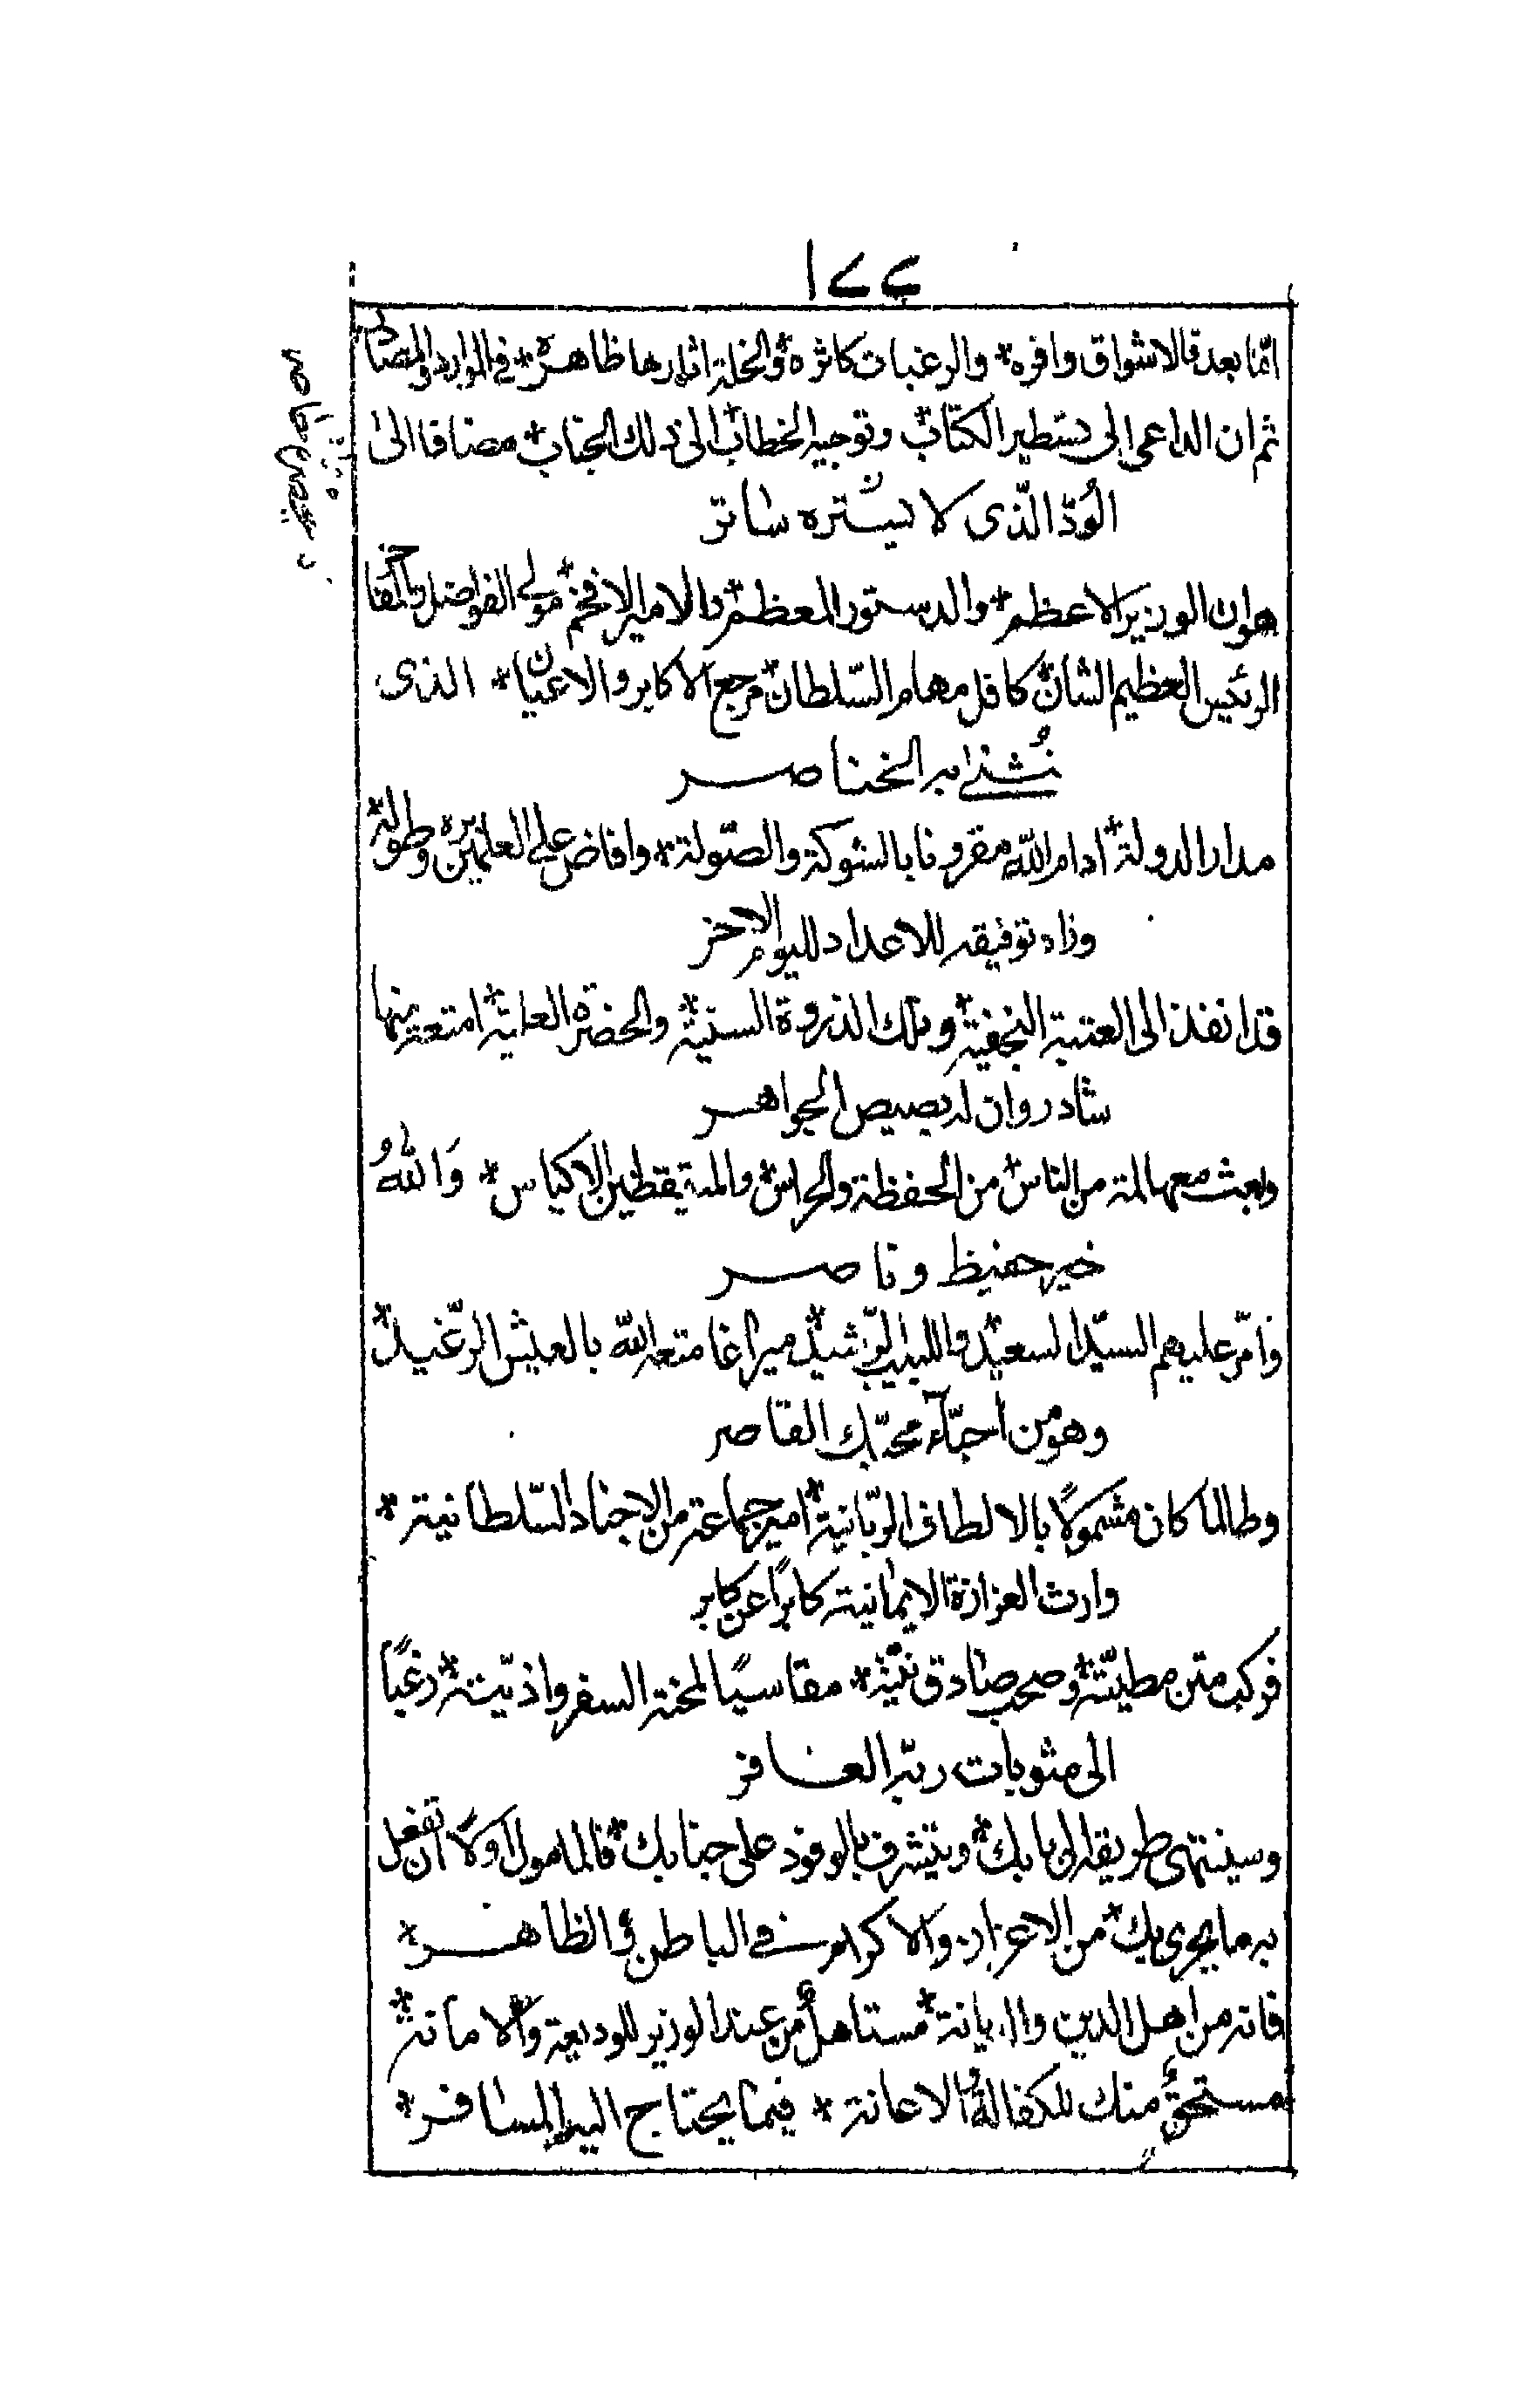 ١٧٤
امّا بعد فالاشواق وافره * والرغبات كاثرة * والخلة اثارها ظاهرة * في الموارد والمصادر
ثم ان الداعى الى تسطير الكتاب * وتوجيه الخطاب * الى ذلك الجناب * مضافا الى
الوُدّ الّذى لا يستره ساتر
هو ان الوزير الاعظم * والدستور المعظم * والامير الافخم * مولى الفواضل والمفاخر
الرئيس العظيم الشان * كافل مهام السّلطان * مرجع الاكابر والاعيان * الذى
تُثنى به الخناصر
مدار الدولة * ادامه اللّه مقرونا بالشوكة والصّولة * وافاض على العلمين بره وطوله *
وزاد توفيقه للاعداد لليوم الاخر
قد انفذ الى العتبة النجفية * وتلك الذروة السنيّة * والحضرة العلية * امتعة منها
شادروان له بصيص الجواهر
وبعث معها لمة من الناس * من الحفظة والحراس * والمتيقظين الاكياس * وَاللّٰهُ
خير حفيظ وناصر
وامّر عليهم السيّد السعيد * واللبيب الرّشيد * ميراغا متعه اللّه بالعيش الرّغيد *
وهو من احبّآء محبّك القاصر
وطالما كان مشمولًا بالالطاف الربّانية * امير جماعة من الاجناد السّلطانية *
وارث العزازة الايمانية كابرًا عن كابر
فركب متن مطيّته * وصحب صادق نيّته * مقاسيًا لمحنة السفر واذيّته * رغبًا
الى مثوبات ربّه الغافر
وسينتهى طريقه الى بابك * ويتشرف بالوفود على جنابك * فالمامول اولًا ان تفعل
به ما يحرى بك * من الاعزاز والاكرام في الباطن والظاهر *
فانه من اهل الدين والديانة * مستاهلٌ من عند الوزير للوديعة والامانة *
مستحقٌ منك للكفالة والاعانة * فيما يحتاج اليه المسافر *